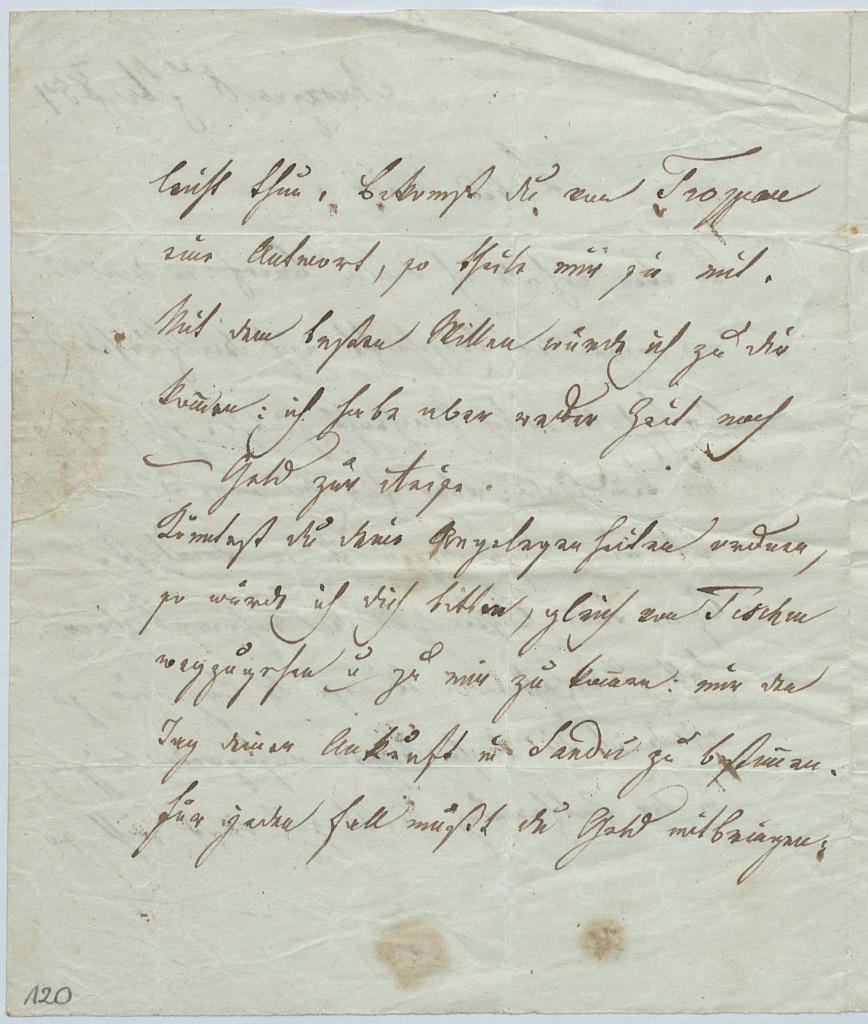 leicht thun. Bekomst du von Troppau
eine Antwort, so theile mir sie mit.
Mit dem besten Willen würde ich zu dir
kom̄en: ich habe aber weder Zeit noch
Geld zur Reise.
Könntest du deine Angelegenheiten ordnen,
so würde ich dich bitten, gleich von Teschen
wegzugehen u zu mir zu kom̄en: mir den
Tag deiner Ankunft in Sandec zu bestim̄en.
Für jeden Fall müßt du Geld mitbringen;
120